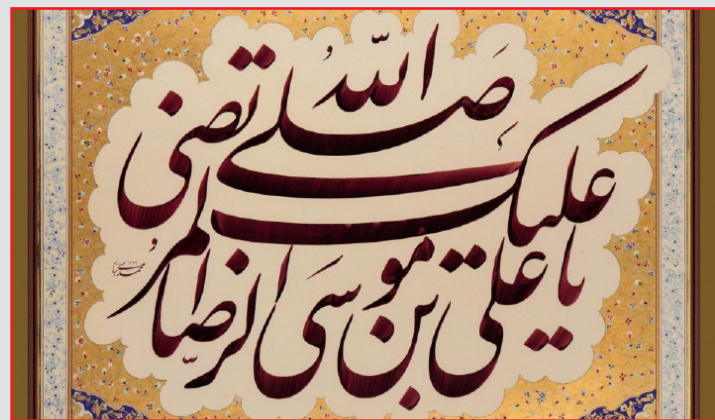 صلی الله علیک
یا علی بن موسی الرضا المرتضی